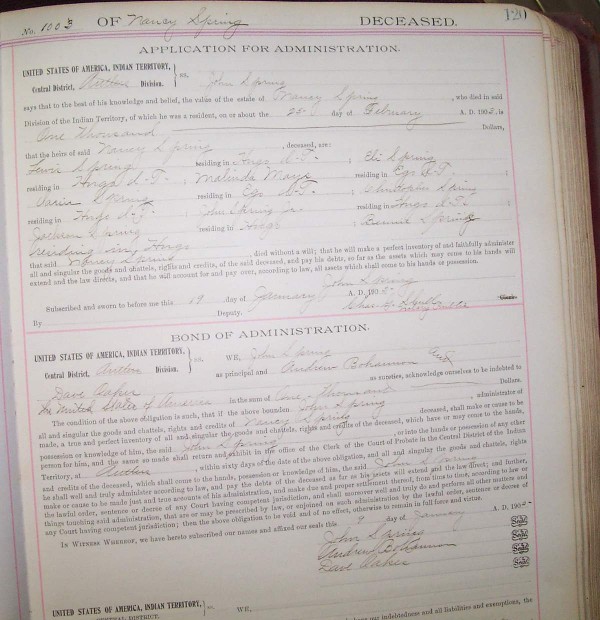 No. 1003 OF Nancy Spring DECEASED. 120
APPLICATION FOR ADMINISTRATION.
UNITED STATES OF AMERICA, INDIAN TERRITORY,
Central District, Division. ss. John Spring
says that to the best of his knowledge and belief, the value of the estate of Nancy Spring, who died in said
Division of the Indian Territory, of which he was a resident, on or about the 25 day of February A. D. 190, is
One Thousand Dollars,
that the heirs of said Nancy Spring deceased, are:
Lewis Spring residing in Hugo I-T-; Eli Spring
residing in Hugo I-T-; Malinda Mays residing in I-T-;
Spring residing in I-T-; Christopher Spring
residing in Hugo I-T-; John Spring Jr residing in Hugo I-T-;
Spring residing in Hugo; Spring
residing in Hugo
that said Nancy Spring died without a will; that he will make a perfect inventory of and faithfully administer
all and singular the goods and chattels, rights and credits, of the said deceased, and pay his debts, so far as the assets which may come to his hands will
extend and the law directs, and that he will account for and pay over, according to law, all assets which shall come to his hands or possession.
John Spring
Subscribed and sworn to before me this 19 day of January A. D. 190
By Deputy. Clerk
BOND OF ADMINISTRATION.
UNITED STATES OF AMERICA, INDIAN TERRITORY,
Central District, Division. ss. WE, John Spring
as principal and Andrew Bohannon and
Dave Baker as sureties, acknowledge ourselves to be indebted to
The United States of America in the sum of One thousand Dollars.
The condition of the above obligation is such, that if the above bounden John Spring administrator of
all and singular the goods and chattels, rights and credits of Nancy Spring deceased, shall make or cause to be
made, a true and perfect inventory of all and singular the goods and chattels, rights and credits of the deceased, which have or may come to the hands,
possession or knowledge of him, the said John Spring, or into the hands or possession of any other
person for him, and the same so made shall return and exhibit in the office of the Clerk of the Court of Probate in the Central District of the Indian
Territory, at, within sixty days of the date of the above obligation, and all and singular the goods and chattels, rights
and credits of the deceased, which shall come to the hands, possession or knowledge of him, the said John Spring
he shall well and truly administer according to law, and pay the debts of the deceased as far as his assets will extend and the law direct; and further,
make or cause to be made just and true accounts of his administration, and make due and proper settlement thereof, from time to time, according to law or
the lawful order, sentence or decree of any Court having competent jurisdiction, and shall moreover well and truly do and perform all other matters and
things touching said administration, that are or may be prescribed by law, or enjoined on such administration by the lawful order, sentence or decree of
any Court having competent jurisdiction; then the above obligation to be void and of no effect, otherwise to remain in full force and virtue.
IN WITNESS WHEREOF, we have hereunto subscribed our names and affixed our seals this 9 day of January A. D. 190
John Spring Seal
Andrew Bohannon Seal
Dave Baker Seal
Seal
UNITED STATES OF AMERICA, INDIAN TERRITORY,
CENTRAL DISTRICT. ss. WE,
our indebtedness and all liabilities and exemptions, the